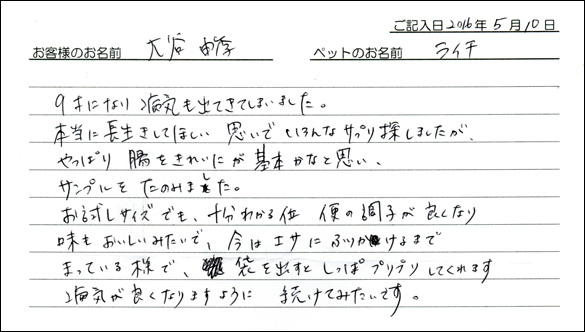 ご記入日2016年5月10日
お客様のお名前 大谷 由季 ペットのお名前 ライチ
9才になり 病気も出てきてしまいました。
本当に長生きしてほしい 思いで いろんなサプリ探しましたが、
やっぱり 腸をきれいにが 基本かなと思い、
サンプルを たのみました。
お試しサイズでも、十分わかる位 便の調子が良くなり
味もおいしいみたいで、今は エサにふりかけるまで
まっている様で、袋を出すと しっぽプリプリしてくれます
病気が良くなりますように 続けてみたいです。